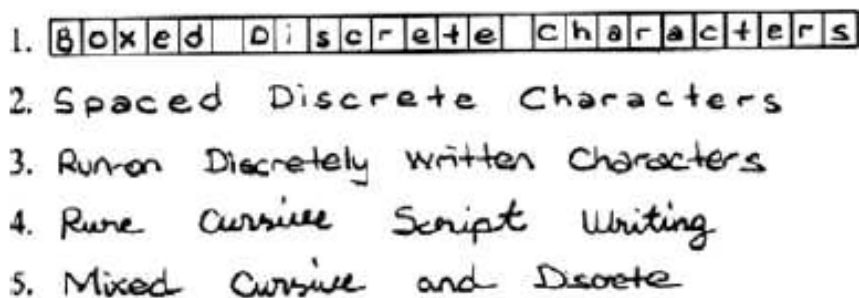 1. Boxed Discrete Characters
2. Spaced Discrete Characters
3. Run-on Discretely written Characters
4. Pure Cursive Script Writing
5. Mixed Cursive and Discrete